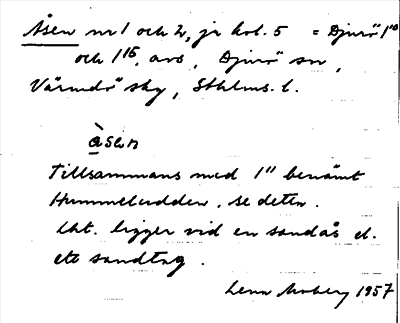 Åsen nr 1 och 2, jr kol. 5 = Djurö 1¹⁰
och 1¹⁵, avs, Djurö sn,
Värmdö sky, Sthlms. l.
å̀sen
Tillsammans med 1¹¹ benämt
Hummeludden, se detta.
Lht. ligger vid en sandås el.
ett sandtag.
Lena Moberg 1957